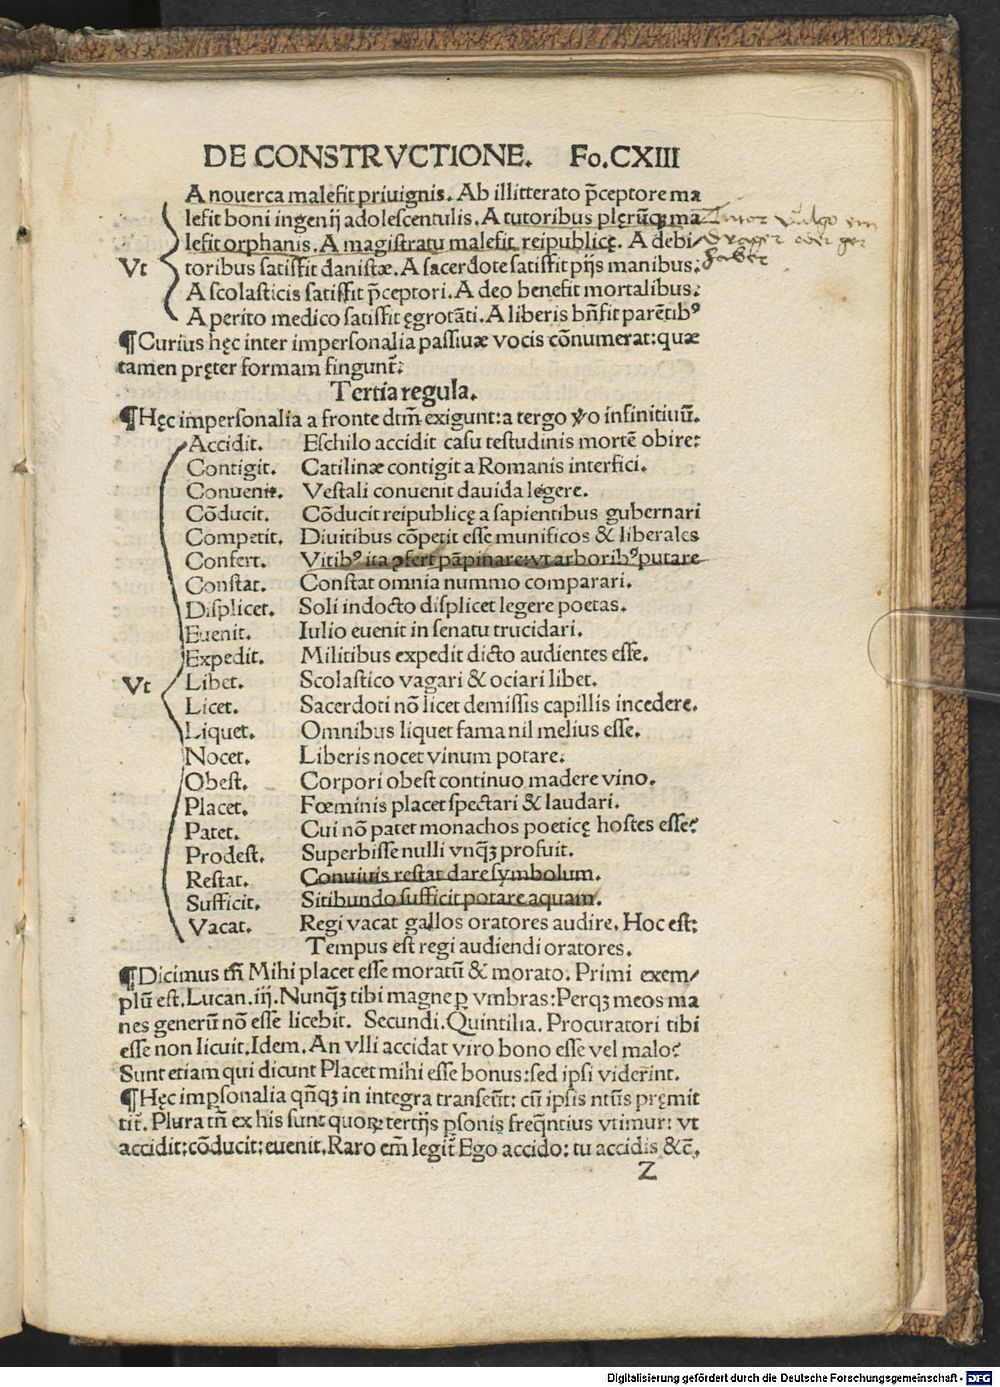 DE CONSTRVCTIONE. Fo.CXIII
A nouerca malefit priuignis. Ab illitterato p̄ceptore ma
lefit boni ingenij adolescentulis. A tutoribus plerūqꝫ ma
lefit orphanis. A magistratu malefit reipublicę. A debi⸗
Vt toribus satisfit danistæ. A sacerdote satisfit pijs manibus:
A scolasticis satisfit p̄ceptori. A deo benefit mortalibus:
A perito medico satisfit ęgrotāti. A liberis bn̄fit parētibꝰ
¶Curius hęc inter impersonalia passiuæ vocis cōnumerat: quæ
tamen pręter formam fingunt̄:
Tertia regula.
¶Hęc impersonalia a fronte dtm̄ exigunt: a tergo ꝟo infinitiuū.
Accidit. Eschilo accidit casu testudinis mortē obire:
Contigit. Catilinæ contigit a Romanis interfici.
Conuenit. Vestali conuenit dauida legere.
Cōducit. Cōducit reipublicę a sapientibus gubernari
Competit. Diuitibus cōpetit esse munificos & liberales
Confert. Vitibꝰ ita ꝯfert pāpinare: vt arboribꝰ putare
Constat. Constat omnia nummo comparari.
Displicet. Soli indocto displicet legere poetas.
Euenit. Iulio euenit in senatu trucidari.
Expedit. Militibus expedit dicto audientes esse.
Vt Libet. Scolastico vagari & ociari libet.
Licet. Sacerdoti nō licet demissis capillis incedere.
Liquet. Omnibus liquet fama nil melius esse.
Nocet. Liberis nocet vinum potare:
Obest. Corpori obest continuo madere vino.
Placet. Fœminis placet spectari & laudari.
Patet. Cui nō patet monachos poeticę hostes esse?
Prodest. Superbisse nulli vnqꝫ profuit.
Restat. Conuiuis restat dare symbolum.
Sufficit. Sitibundo sufficit potare aquam.
Vacat. Regi vacat gallos oratores audire. Hoc est:
Tempus est regi audiendi oratores.
¶Dicimus tn̄ Mihi placet esse moratū & morato. Primi exem⸗
plū est. Lucan. iij. Nunqꝫ tibi magne ꝑ vmbras: Perqꝫ meos ma
nes generū nō esse licebit. Secundi. Quintilia. Procuratori tibi
esse non licuit. Idem. An vlli accidat viro bono esse vel malo?
Sunt etiam qui dicunt Placet mihi esse bonus: sed ipsi viderint.
¶Hęc imꝑsonalia qn̄qꝫ in integra transeūt: cū ipsis ntūs pręmit
tit̄. Plura tn̄ ex his sunt quoꝝ tertijs ꝑsonis freqn̄tius vtimur: vt
accidit: cōducit: euenit. Raro em̄ legit̄ Ego accido: tu accidis &c̄,
Z
Digitalisierung gefördert durch die Deutsche Forschungsgemeinschaft - DFG